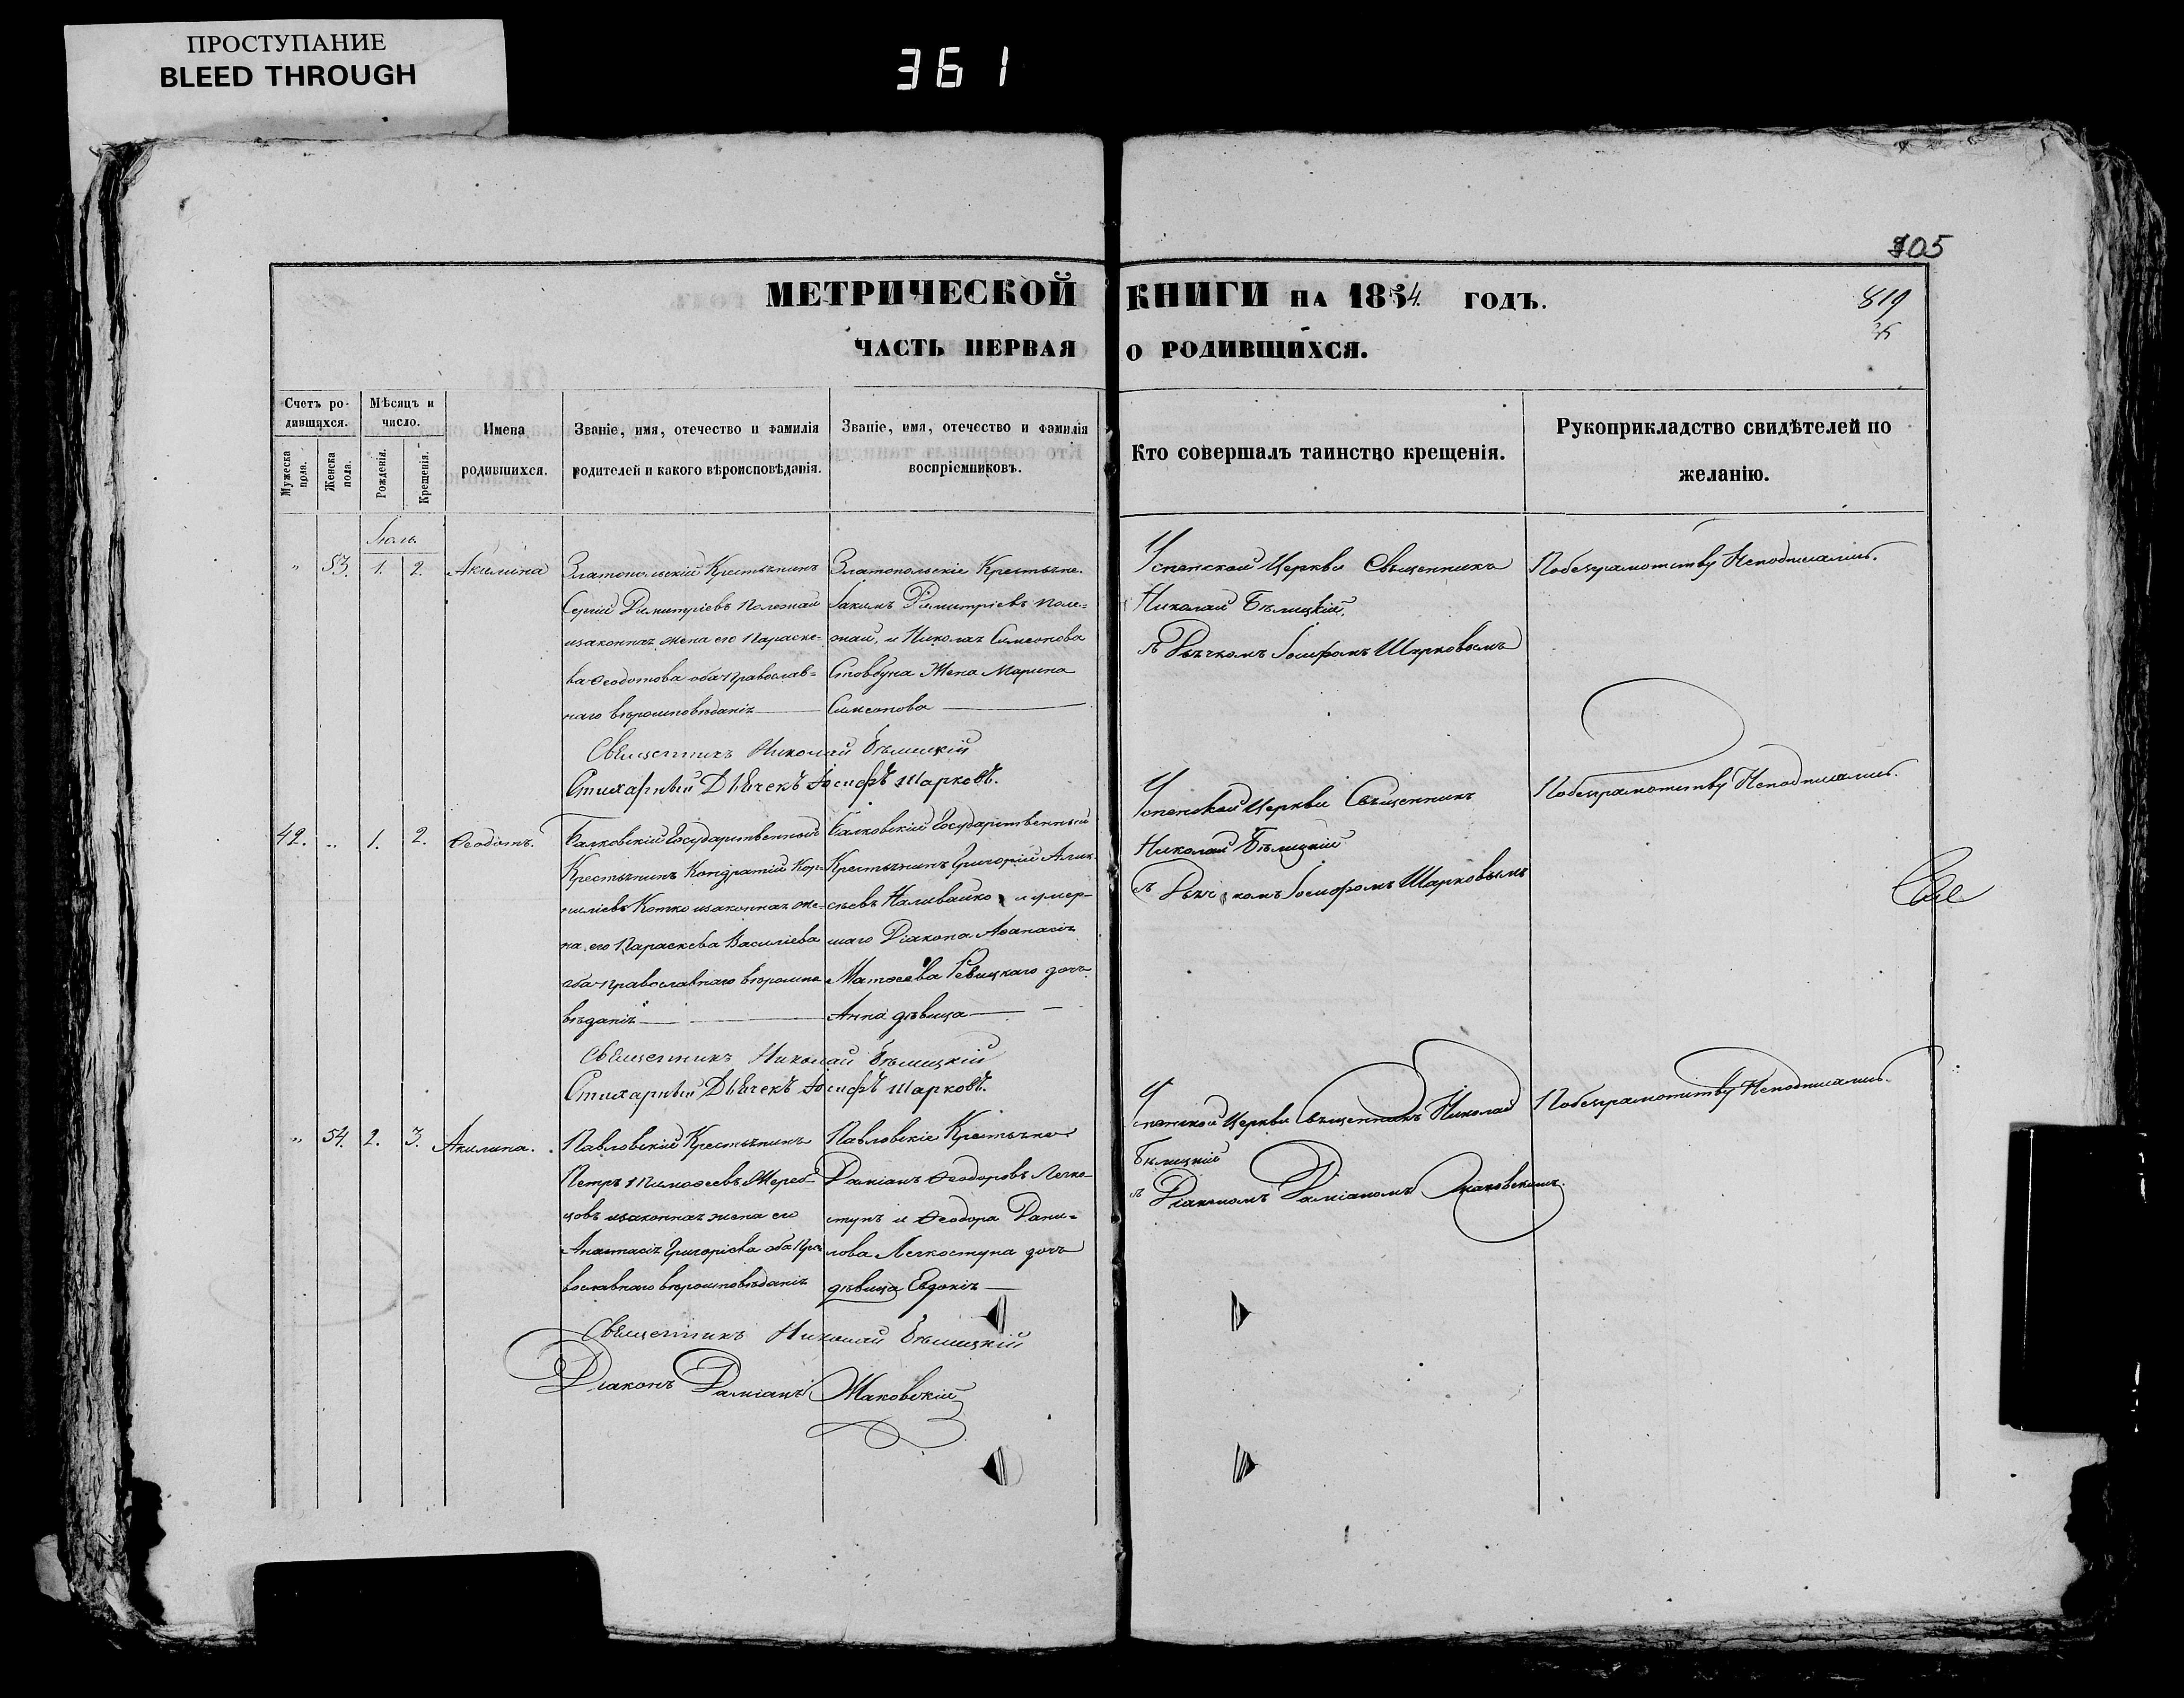 ПРОСТУПАНИЕ
BLEED THROUGH
361
105
МЕТРИЧЕСКОЙ КНИГИ НА 1854. ГОДЪ.
819
ЧАСТЬ ПЕРВАЯ О РОДИВШИХСЯ.
Счетъ родившихся.
Мужеска пола.
Женска пола.
Мѣсяцъ и число.
Рожденія.
Крещенія.
Имена родившихся.
Званіе, имя, отечество и фамилія родителей и какого вѣроисповѣданія.
Званіе, имя, отечество и фамилія воспріемниковъ.
Кто совершалъ таинство крещенія.
Рукоприкладство свидѣтелей по желанію.
Іюль.
" 53. 1. 2. Акилина
Златопольскій Крестьянинъ
Сергій Димитріевъ Полежай
изаконная жена его Параске-
ва Ѳеодотова оба православ=
наго вѣроисповѣданія
Златопольскіе Крестьяне.
Іакимъ Димитріевъ Поле=
жай, и Николая Симеонова
Стовбуна Жена Марина
Симеонова
Успенской Церкви Священникъ
Николай Бѣлицкій,
съ Дьячкомъ Іосифомъ Шарковымъ
Побезграмотству Неподписались.
Священникъ Николай Бѣлицкій
Стихарный Дьячекъ Іосифъ Шарковъ.
42. " 1. 2. Ѳеодотъ.
Балковскій Государственный
Крестьянинъ Кондратій Кор=
ниліевъ Котко изаконная же=
на его Параскева Василіева
оба православнаго вѣроиспо
вѣданія
Балковскій Государственный
Крестьянинъ Григорій Алек
сѣевъ Наливайко и умер-
шаго Діакона Аѳанасія
Матѳеева Левицкаго дочь
Анна дѣвица
Успенской Церкви Священникъ
Николай Бѣлицкій
съ Дьячкомъ Іосифомъ Шарковымъ
Побезграмотству Неподписались.
Священникъ Николай Бѣлицкій
Стихарный Дьячекъ Іосифъ Шарковъ.
" 54. 2. 3. Акилина.
Павловскій Крестьянинъ
Петръ Тимоѳеевъ Жереб-
цовъ изаконная жена его
Анастасія Григоріева оба пра
вославнаго вѣроисповѣданія
Павловскіе Крестьяне
Даміанъ Ѳеодоровъ Легко-
ступъ и Ѳеодора Дани=
лова Легкоступа дочь
дѣвица Евдокія
Успенской Церкви Священникъ Николай
Бѣлицкій
съ Діакономъ Даміаномъ Жаковскимъ.
Побезграмотству Неподписались.
Священникъ Николай Бѣлицкій
Діаконъ Даміанъ Жаковскій